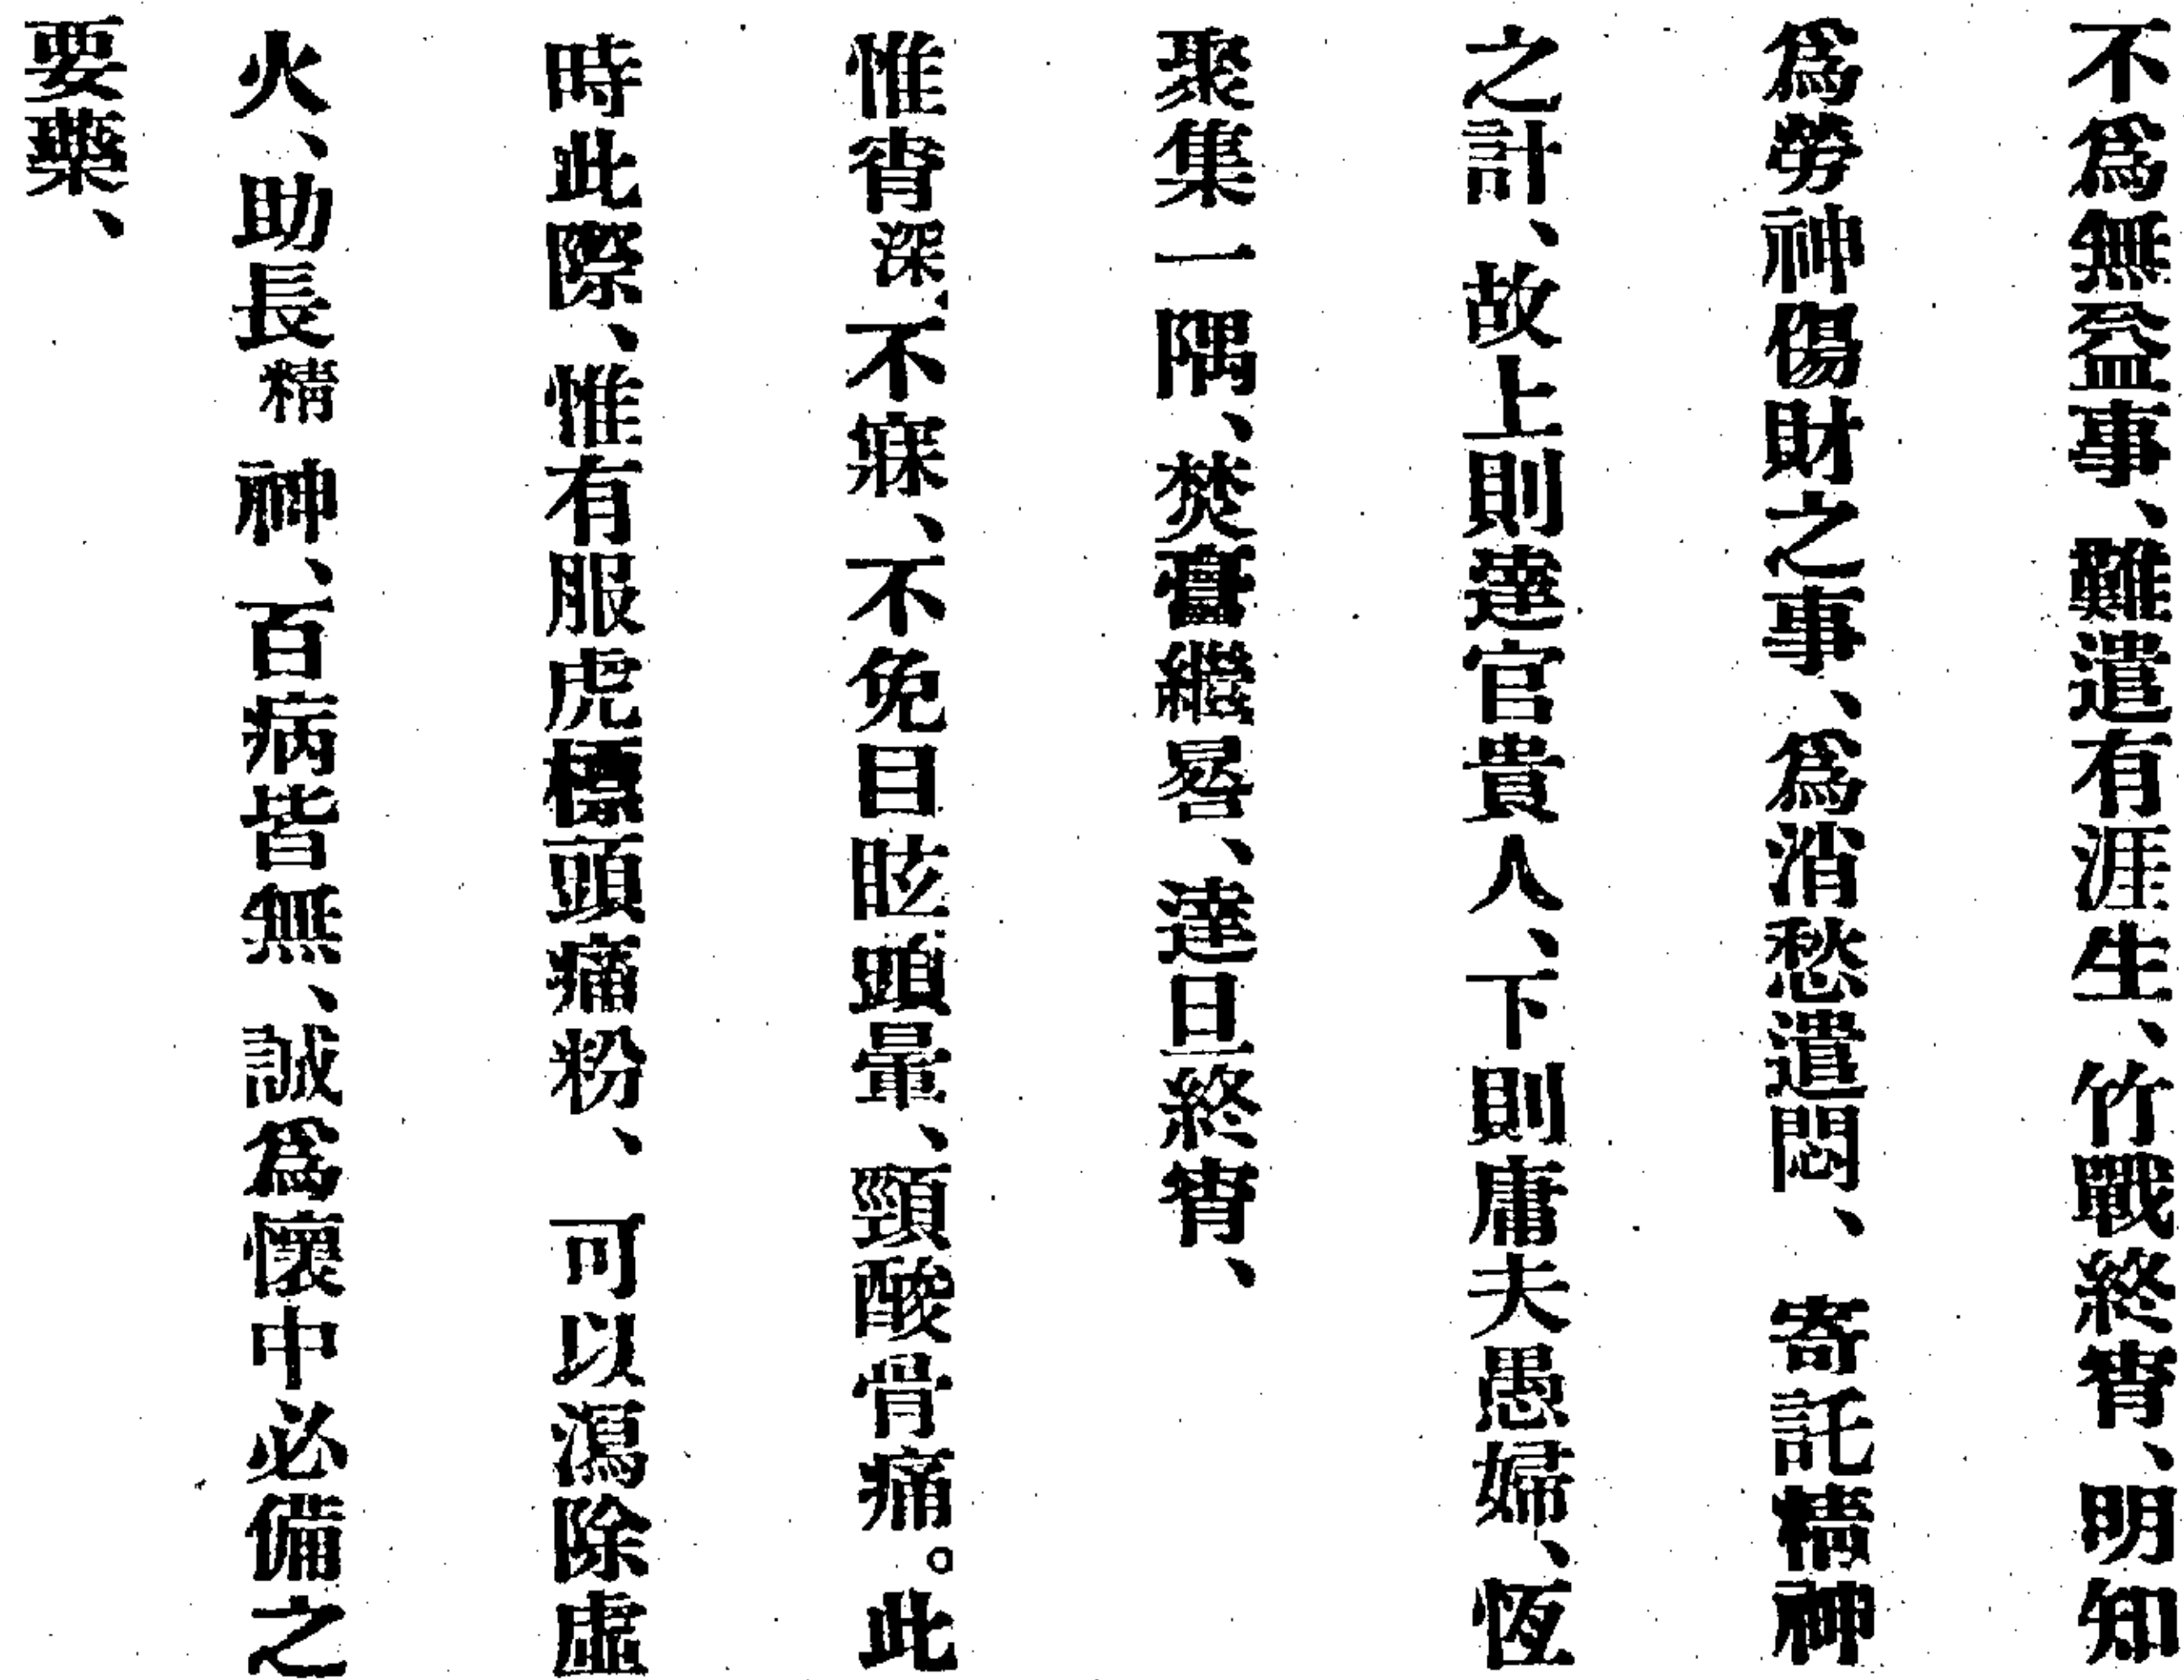 不爲無益事、難遣有涯生、竹戰終宵、明知
爲勞神傷財之事、爲消愁遣悶、寄託精神
之計、故上則達官貴人、下則庸夫愚婦、恆
聚集一隅、焚膏繼晷、達旦終宵、
惟宵深、不寐、不免目眩頭暈、頸酸骨痛。此
時此際、惟有服虎標頭痛粉、可以瀉除虛
火、助長精神、百病皆無、誠爲懷中必備之
要藥、